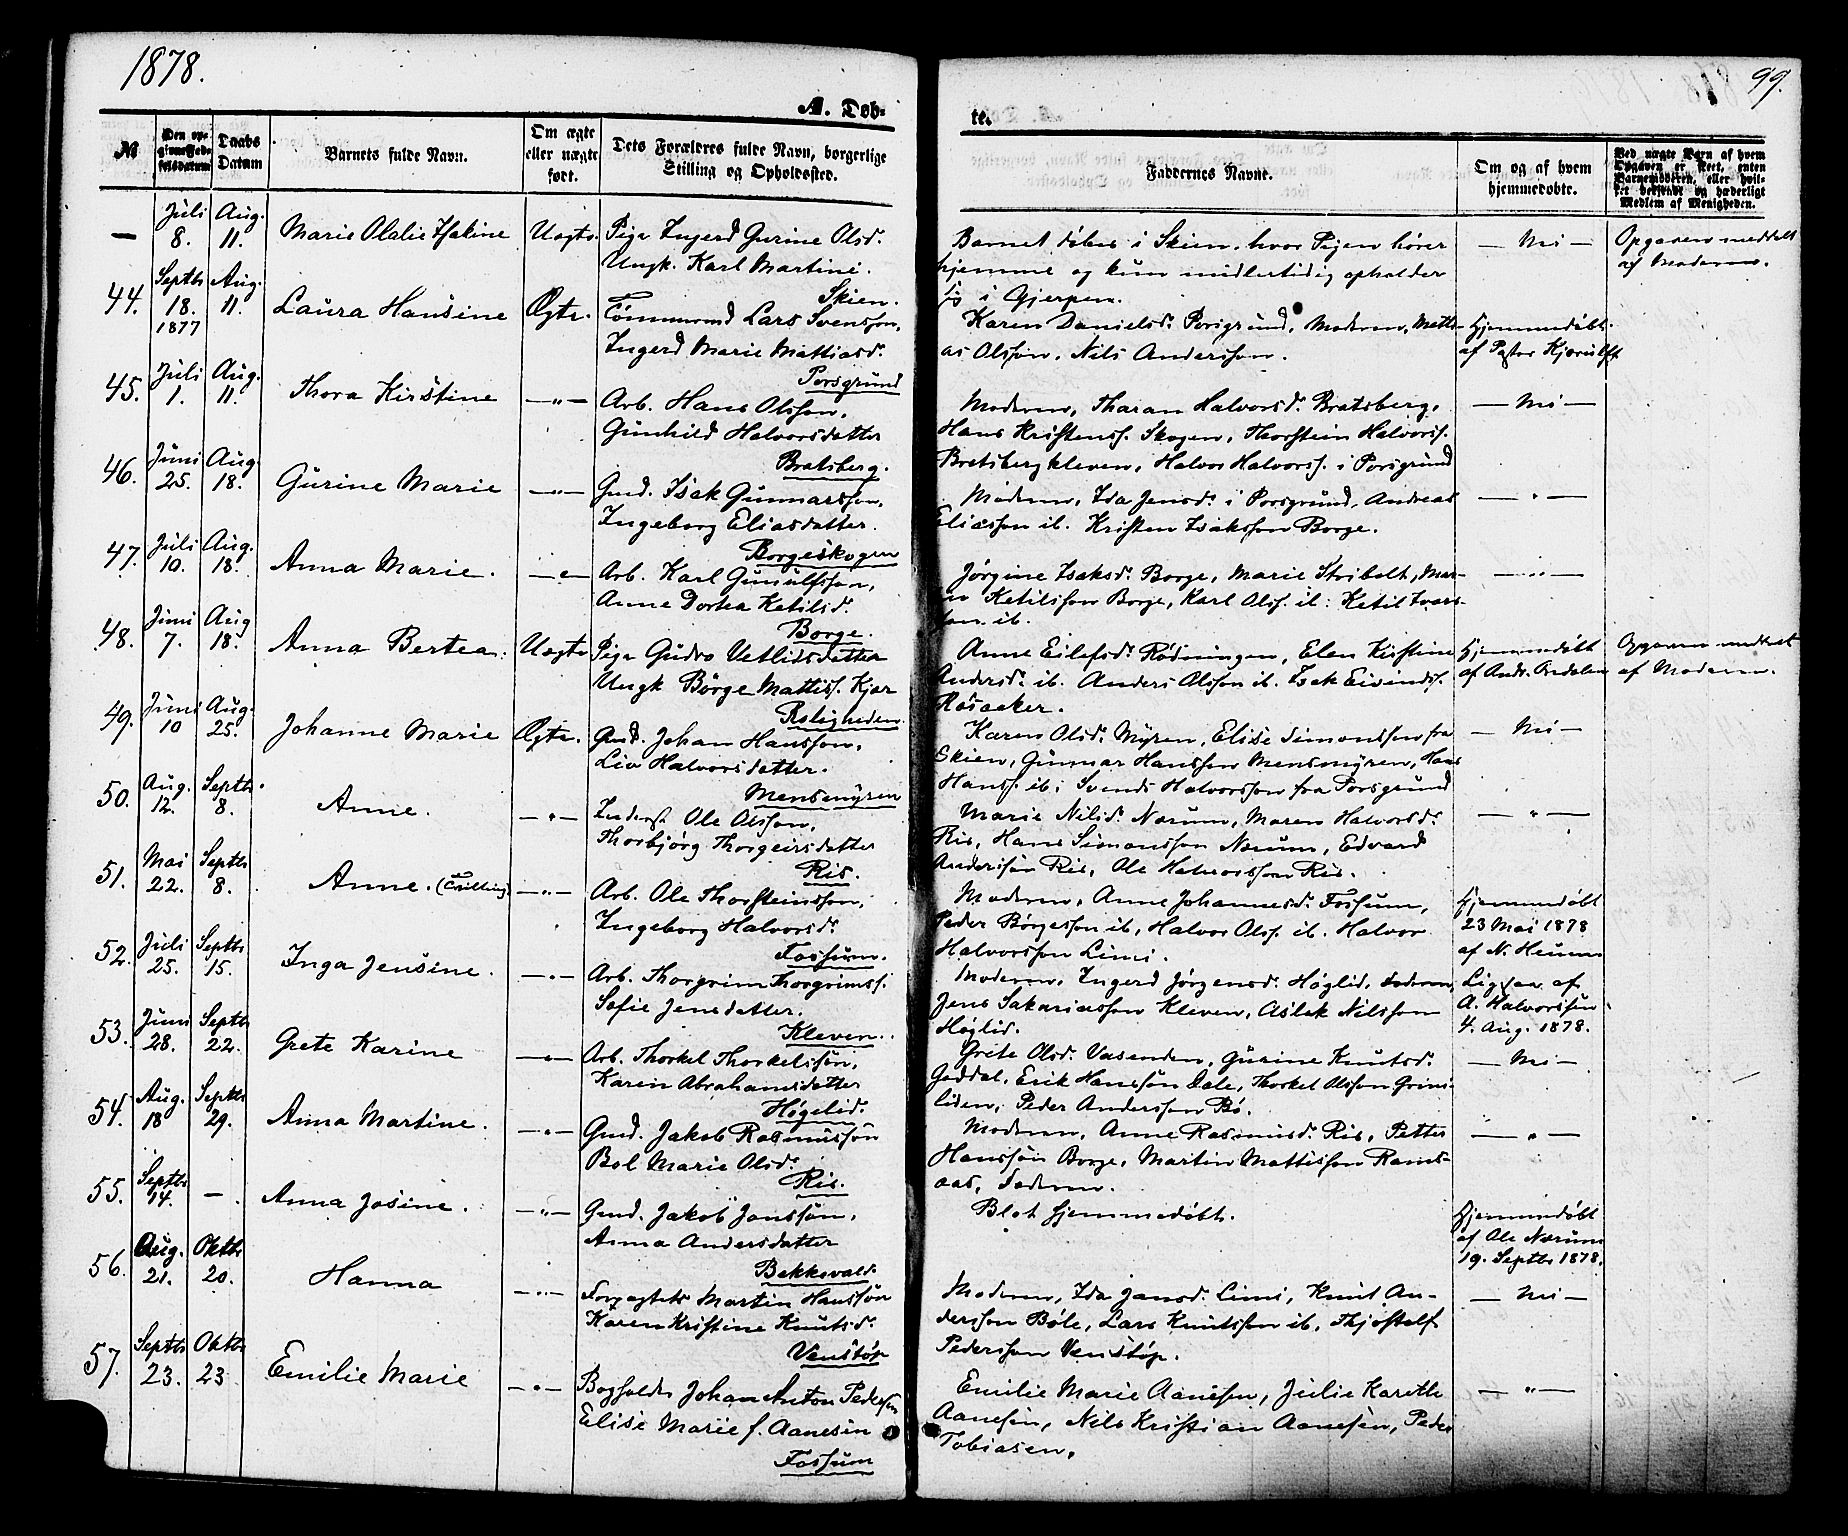 1878.
99.
A. Døb-
te.
№
Daabs Datum
Barnets fulde Navn.
Om ægte eller uægte født.
Dets Forældres fulde Navn, borgerlige Stilling og Opholdssted.
Faddernes Navne.
Om og af hvem hjemmedøbt.
Ved uægte Barn af hvem Opgaven er skeet, enten Barnemoderen, eller hvilket bekjendt og hæderligt Medlem af Menigheden.
— Juli 8. Aug. 11. Marie Olalie Isakine Uægte. Pige Ingerd Gurine Olsd.
Ungk. Karl Martini.
Skien.
Barnet døbes i Skien, hvor Pigen hører
hjemme og kun midlertidig opholder
sig i Gjerpen.
— Nei —
Opgaven meddelt
af Moderen.
44. Septbr 18. 1877 Aug. 11. Laura Hansine Ægte. Tømmermd Lars Svensson,
Ingerd Marie Mattiasd.
Porsgrund
Karen Danielsd. Porsgrund, Moderen, Matti-
as Olsson, Nils Andersson.
Hjemmedøbt
af Pastor Kjerulff
45. Juli 1. Aug. 11. Thora Kirstine —"— Arb. Hans Olsson,
Gunhild Halvorsdatter
Bratsberg.
Moderen, Tharan Halvorsd. Bratsberg,
Hans Kristenss. Skogen, Thorstein Halvorss.
Bratsbergkleven, Halvor Halvorss. i Porsgrund
— Nei —
46. Juni 25. Aug. 18. Gurine Marie —"— Gmd. Isak Gunnarsson,
Ingeborg Eliasdatter.
Borgeskogen
Moderen, Ida Jensd. i Porsgrund, Andreas
Eliasson ib. Kristen Isaksson Borge.
— " —
47. Juli 10. Aug. 18. Anna Marie. —"— Arb. Karl Gunulfsson,
Anne Dortea Ketilsd.
Borge.
Jørgine Isaksd. Borge, Marie Stribolt, Mar-
Ketilsson Borge, Karl Olss. ib: Ketil Ivars-
son ib.
— " —
48. Juni 7. Aug 18. Anna Bertea. Uægte Pige Gudro Vetlidsdatter
Ungk Børge Mattiss. Kjær
Roligheden.
Anne Eilefsd. Rødningen, Elen Kirstine
Andersd. ib. Anders Olsson ib. Isak Eivindss.
Rasaaker.
Hjemmedøbt
af Andr. Ardalen
Opgaven meddelt
af Moderen.
49. Juni 10 Aug. 25. Johanne Marie Ægte. Gmd. Johan Hansson,
Liv Halvorsdatter.
Mensmyren
Karen Olsd. Myren, Elise Simonsson fra
Skien, Gunnar Hansson Mensmyren, Hans
Hanss. ib; Svend Halvorsson fra Porsgrund
— Nei —
50. Aug. 12. Septbr. 8. Anne. —"— Inderst Ole Olsson,
Thorbjørg Thorgeirsdatter
Ris.
Marie Nilsd. Nærum, Maren Halvorsd.
Ris, Hans Simonsson Nærum, Edvard
Andersson Ris, Ole Halvorsson Ris.
— " —
51. Mai 22. Septb 8. Anne. (Tvilling) —"— Arb. Ole Thorsteinsson,
Ingeborg Halvorsd.
Fossum.
Moderen, Anne Johannesd. Fossum,
Peder Børgesson ib, Halvor Olss. ib. Halvor
Halvorsson Limi.
Hjemmedøbt
23 Mai 1878
af N. Heimm
52. Juli 25. Septbr 15. Inga Jensine. —"— Arb. Thorgrim Thorgrimss.
Sofie Jensdatter.
Kleven.
Moderen, Ingerd Jørgensd. Høglid, Faderen,
Jens Sakariasson Kleven, Aslak Nilsson
Høglid.
Ligesaa af
A. Halvorssøn
4. Aug. 1878.
53. Juni 28. Septb 22. Grete Karine —"— Arb. Thorkel Thorkelssøn,
Karen Abrahamsdatter
Høgelid.
Grete Olsd. Vasenden, Gurine Knutsd.
Goddal, Erik Hanssøn Dale, Thorkel Olsson Grims-
liden, Peder Andersson Bø.
— Nei —
54. Aug. 18 Septbr 29. Anna Martine. —"— Gmd. Jakob Rasmussøn
Bol Marie Olsd.
Ris.
Moderen, Anne Rasmusd. Ris, Petter
Hanssøn Borge, Martin Mattisson Rams-
aas, Faderen.
— " —
55. Septbr 14. — Anna Josine. —"— Gmd. Jakob Jonssøn,
Anna Andersdatter
Bekkevald.
Blot hjemmedøbt.
Hjemmedøbt
af Ole Nærum
19. Septbr 1878.
56. Aug. 21. Oktbr 20. Hanna —"— Forpagter Martin Hanssøn
Karen Kristine Knutsd.
Venstøp
Moderen, Ida Jansd. Limi, Knut An-
dersson Bøle, Lars Knutsson ib, Thjostolf
Pedersson Venstøp.
— Nei —
57. Septbr 23. Oktbr 23 Emilie Marie —"— Bogholder Johan Anton Pedersen
Elise Marie f. Aanesen
Fossum
Emilie Marie Aanesen, Julie Karethe
Aanesen, Nils Kristian Aanesen, Peder
Tobiasen.
— " —